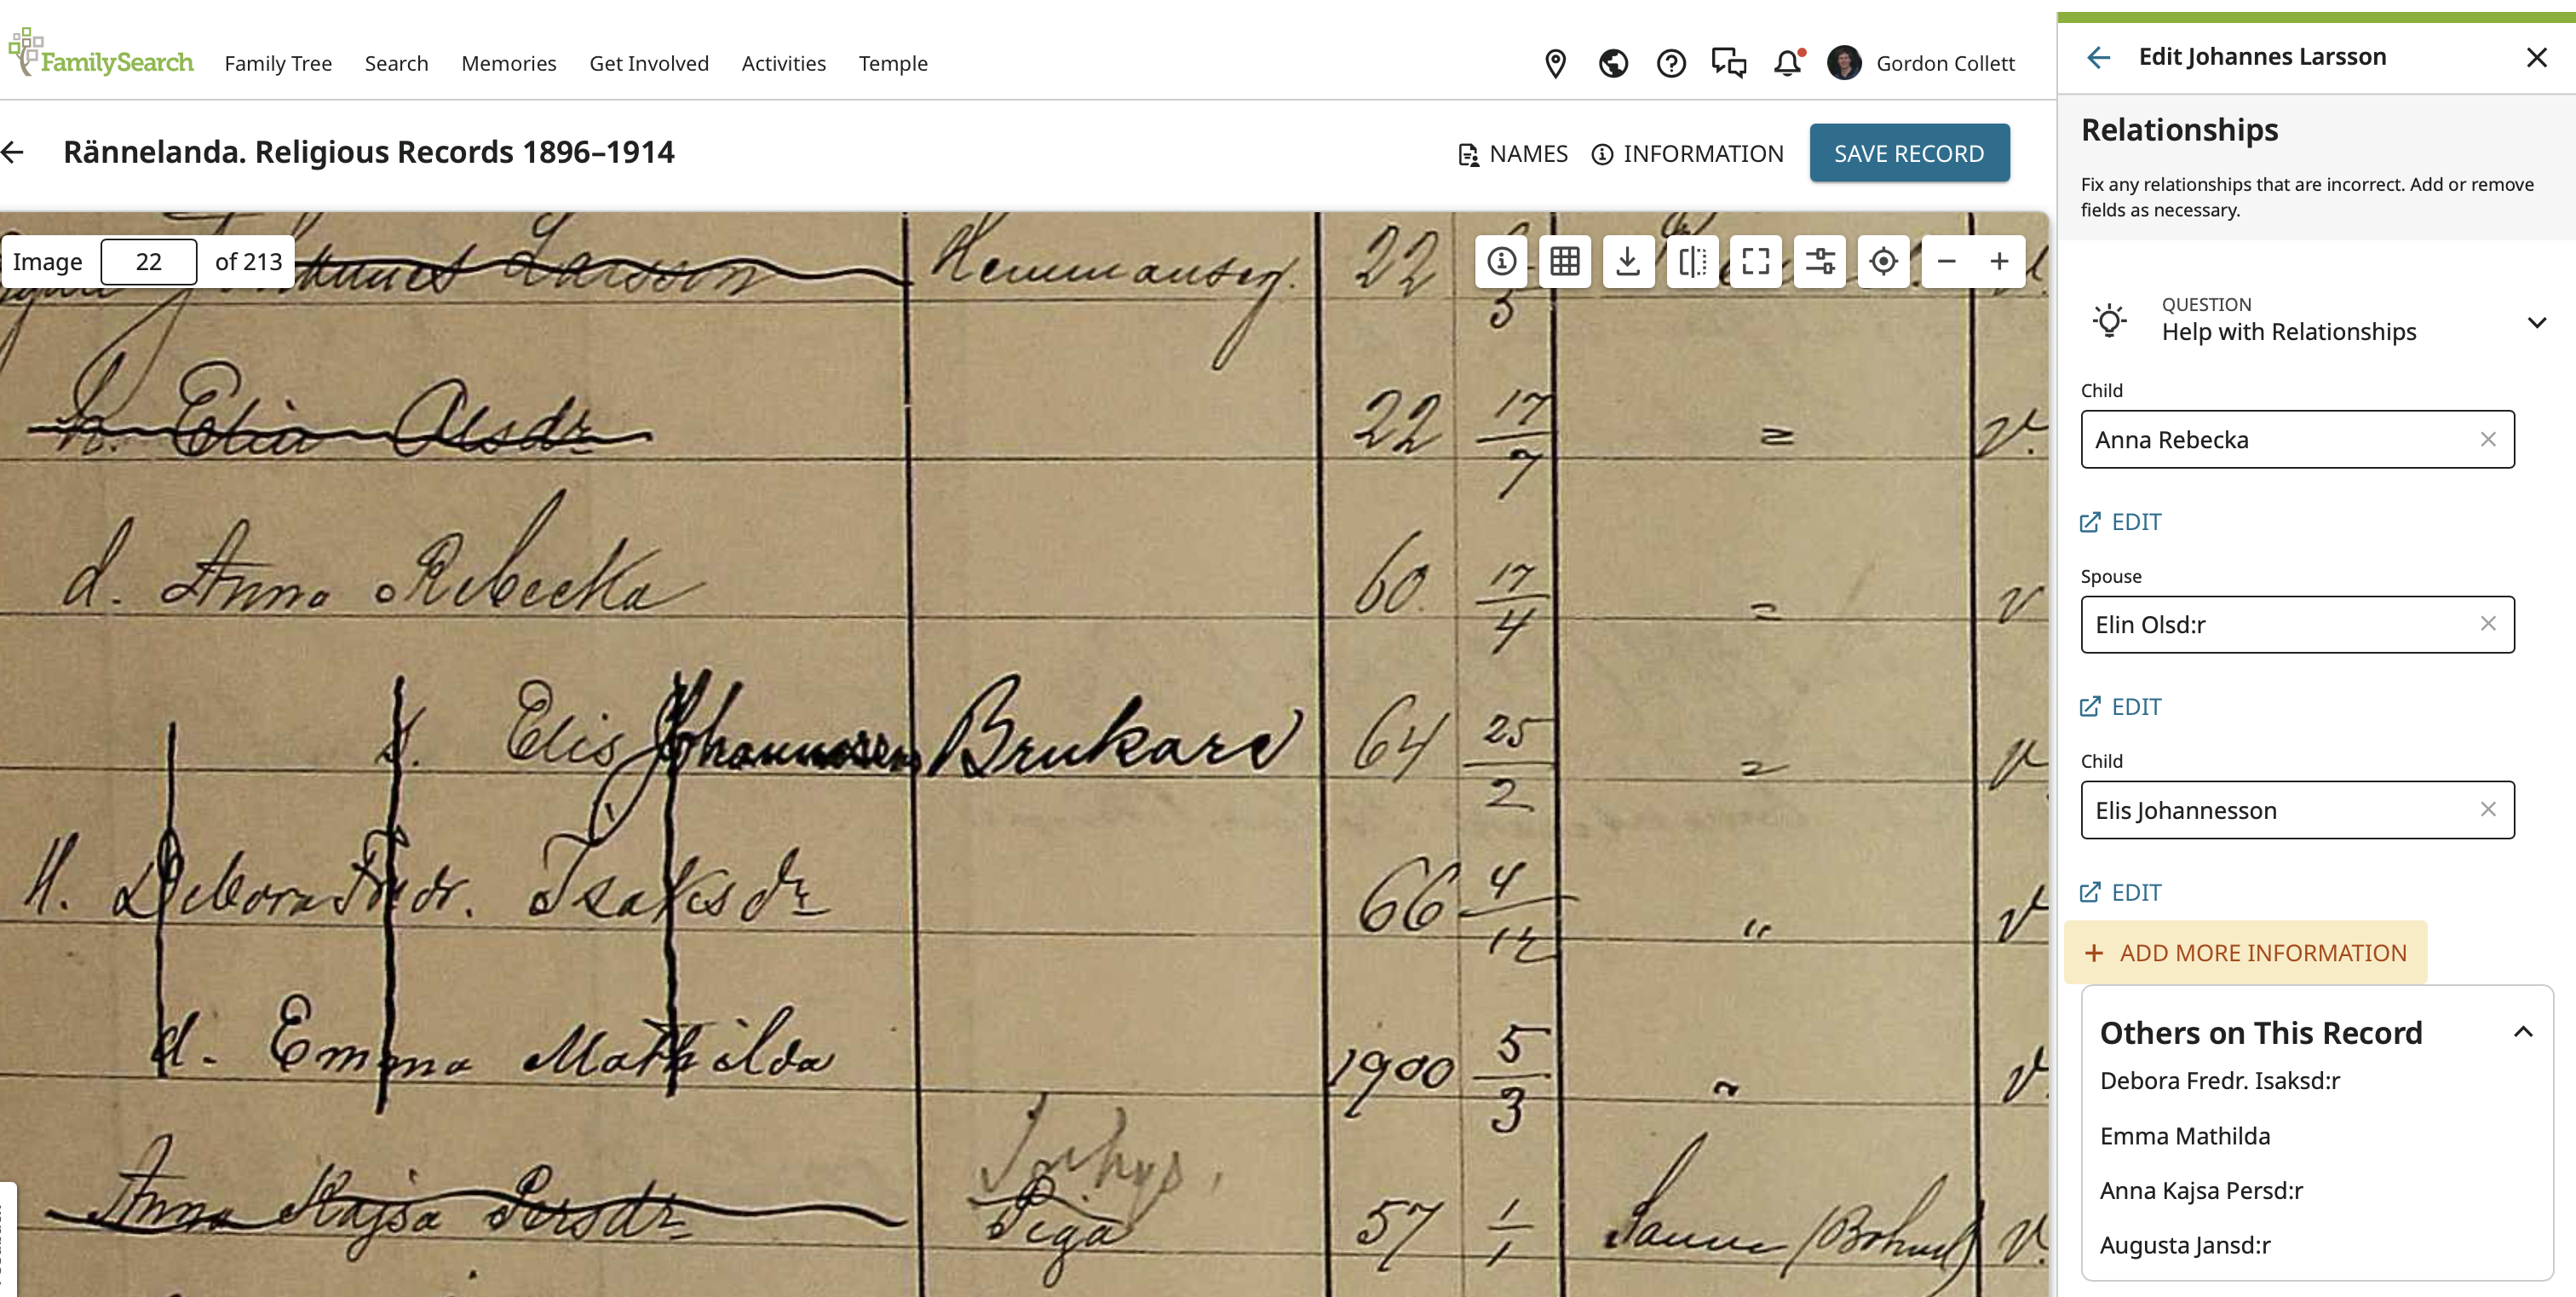 FamilySearch Family Tree Search Memories Get Involved Activities Temple Gordon Collett
Rännelanda. Religious Records 1896–1914 NAMES INFORMATION SAVE RECORD
Image 22 of 213
Johannes Larsson Hemmanseg. 22 5
h. Elin Olsdr 22 17/7 =
d. Anna Rebecka 60. 17/4 = v
s. Elis Johannesson Brukare 64 25/2 = v
H. Debora Fredr. Isaksdr 66 4/12 " v
d. Emma Mathilda 1900 5/3 " v
Inhys,
Anna Kajsa Persdr Piga 57 1/1 Sanne (Bohusl) v.
Edit Johannes Larsson
Relationships
Fix any relationships that are incorrect. Add or remove
fields as necessary.
QUESTION
Help with Relationships
Child
Anna Rebecka
EDIT
Spouse
Elin Olsd:r
EDIT
Child
Elis Johannesson
EDIT
+ ADD MORE INFORMATION
Others on This Record
Debora Fredr. Isaksd:r
Emma Mathilda
Anna Kajsa Persd:r
Augusta Jansd:r